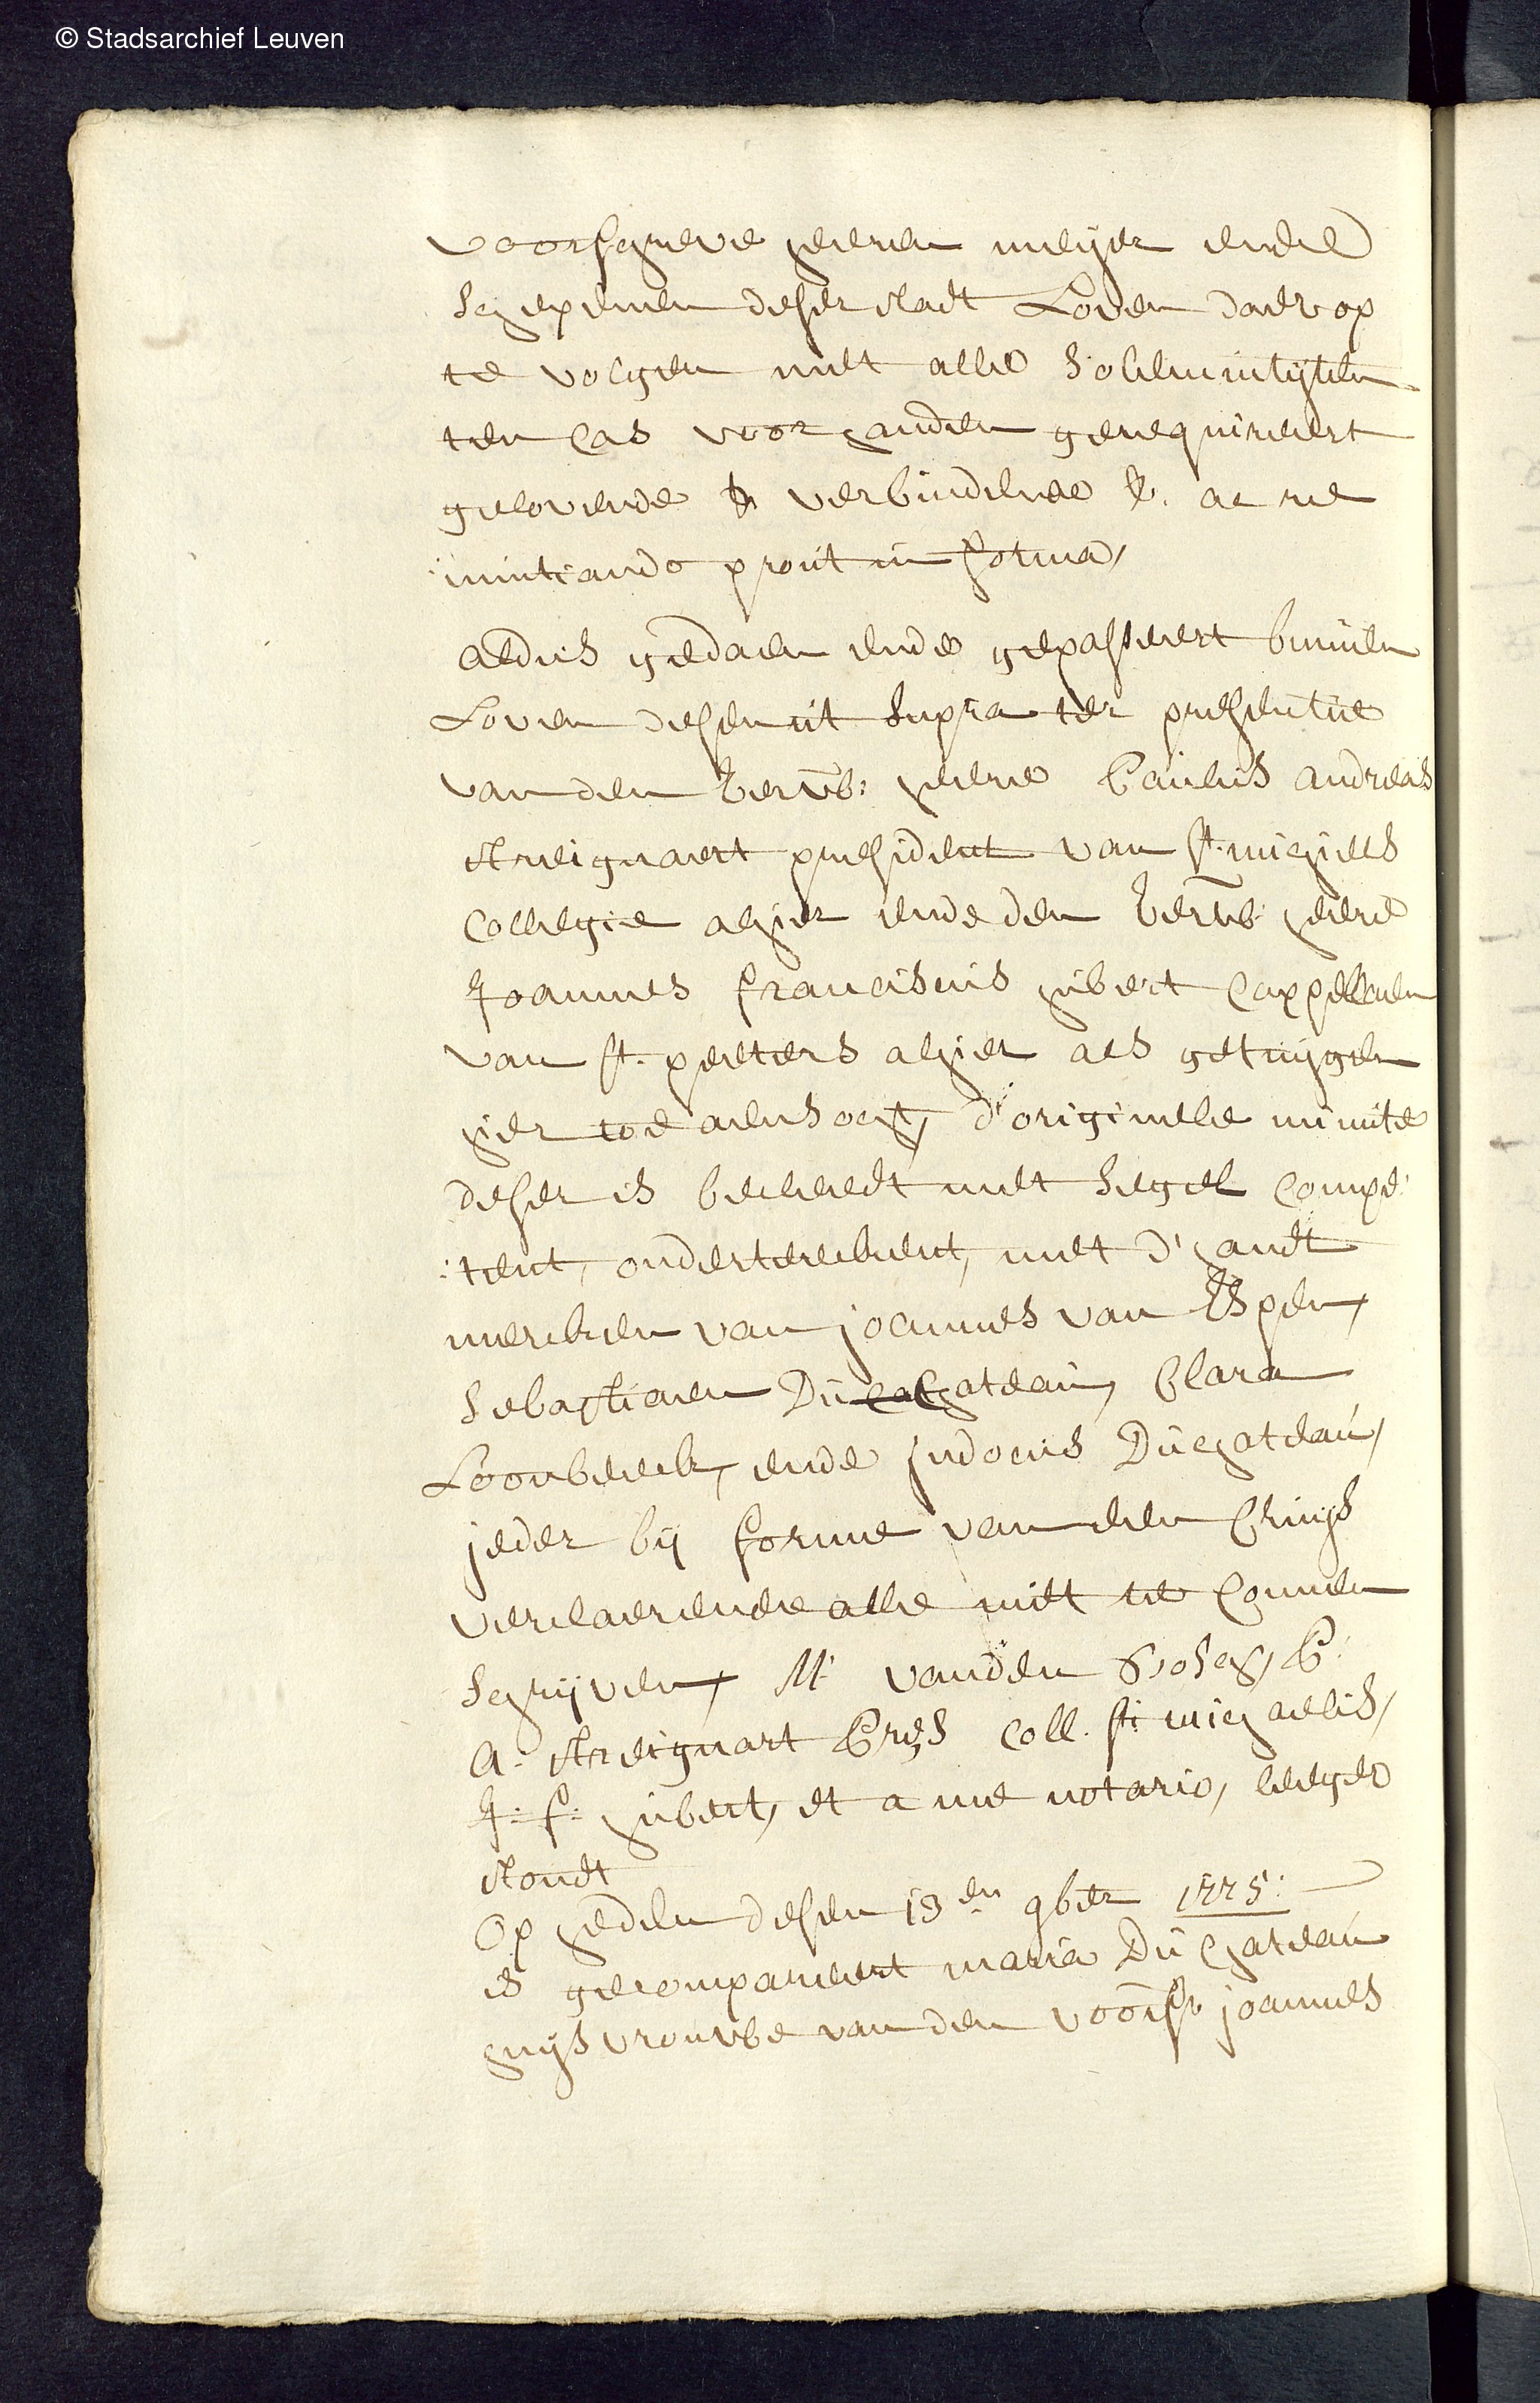 © Stadsarchief Leuven
voorschreve heeren meijer ende
schepenen deser stadt Loven daer op
te volgen met alle solemniteijten
ten cas voor handen gerequireert
gelovende & verbindende &. ac re
:nuntiando prout in forma,
aldus gedaen ende gepasseert binnen
Loven desen ut supra ter presentie
van den Eerw: heere Paulus andreas
streignart president van st. michiels
Collegie alhier ende den Eerw: heere
Joannes franciscus hubert Cappellaen
van st. peeters alhier als getuijgen
hier toe aensocht, d'originele minute
deser is becleedt met segel compe:
:tent, onderteekent, met d'handt
mercken van joannes van Espen,
sebastiaen Du Chateau, Clara
Loonbeeck, ende judocus Duchateau,
jeder bij forme van een Cruijs
verclaerende alle niet te connen
schrijven, M. vanden Bosch, P:
A: streignart Pres Coll. sti michaelis,
J: f: hubert, et a me notario, leeger
stondt
Op heden desen 13en 9ber 1775:
is gecompareert maria Du Chateau
huijsvrouwe van den voors. joannes